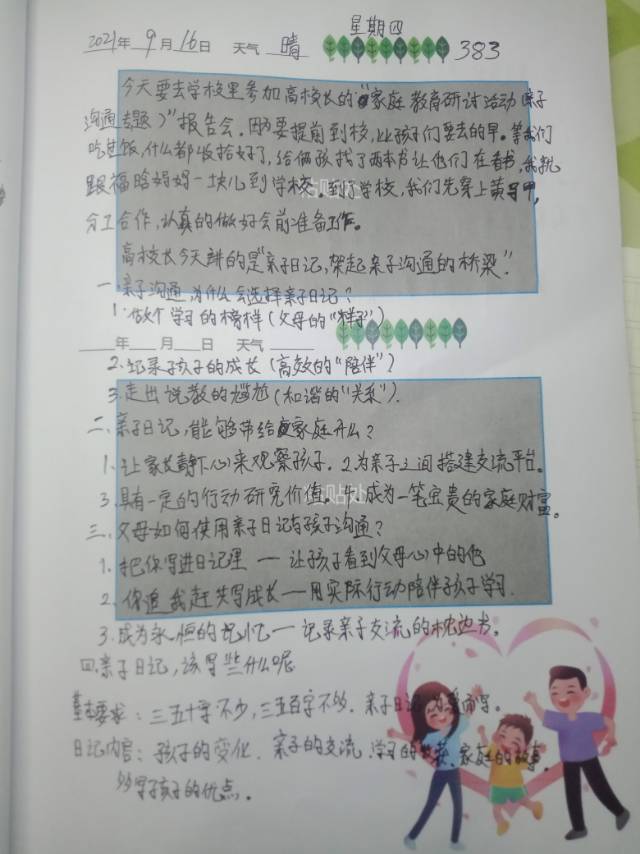 星期四
2021年9月16日 天气 晴 383
今天要去学校里参加高校长的“家庭教育研讨活动(亲子
沟通专题)”报告会,因为要提前到校,比孩子们要去的早。等我们
吃过饭,什么都收拾好了,给俩孩找了两本书让他们在看书,我就
跟福晗妈妈一块儿到学校。到了学校,我们先穿上黄马甲,
分工合作,认真的做好会前准备工作。
高校长今天讲的是“亲子日记,架起亲子沟通的桥梁”.
一.亲子沟通,为什么会选择亲子日记?
1.做个学习的榜样(父母的“样子”)
年 月 日 天气
2.记录孩子的成长(高效的“陪伴”)
3.走出说教的尴尬(和谐的“关系”).
二.亲子日记,能够带给家庭什么?
1.让家长静下心来观察孩子. 2.为亲子之间搭建交流平台。
3.具有一定的行动研究价值. 4.成为一笔宝贵的家庭财富。
粘贴处
三.父母如何使用亲子日记与孩子沟通?
1.把你写进日记里——让孩子看到父母心中的他
2.你追我赶共写成长——用实际行动陪伴孩子学习.
3.成为永恒的记忆——记录亲子交流的枕边书。
四.亲子日记,该写些什么呢
基本要求:三五十字不少,三五百字不多.亲子日记为爱而写。
日记内容:孩子的变化.亲子的交流.学习的收获.家庭的故事.
多写孩子的优点.